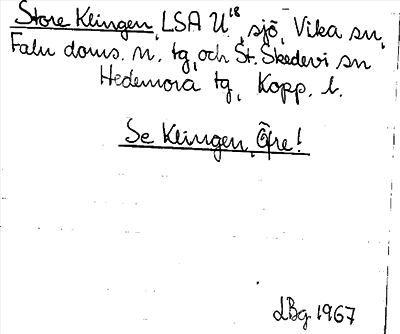 Store Klingen, LSA U18, sjö, Vika sn,
Falu doms. n. tg, och St. Skedevi sn
Hedemora tg, Kopp. l.
Se Klingen, Övre!
LBg 1967